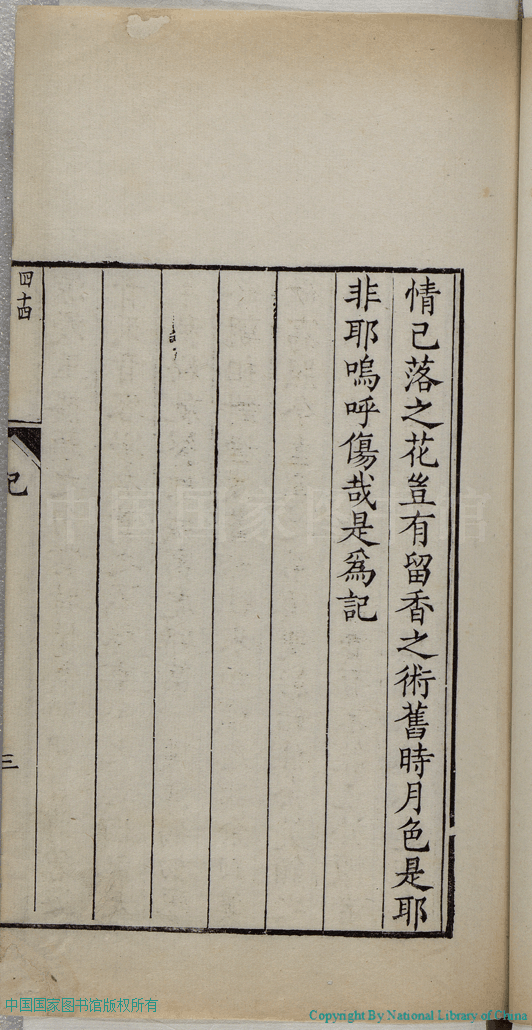 情已落之花豈有留香之術舊時月色是耶
非耶嗚呼傷哉是爲記
記
三
中国国家图书馆
中国国家图书馆版权所有
Copyright By National Library of China